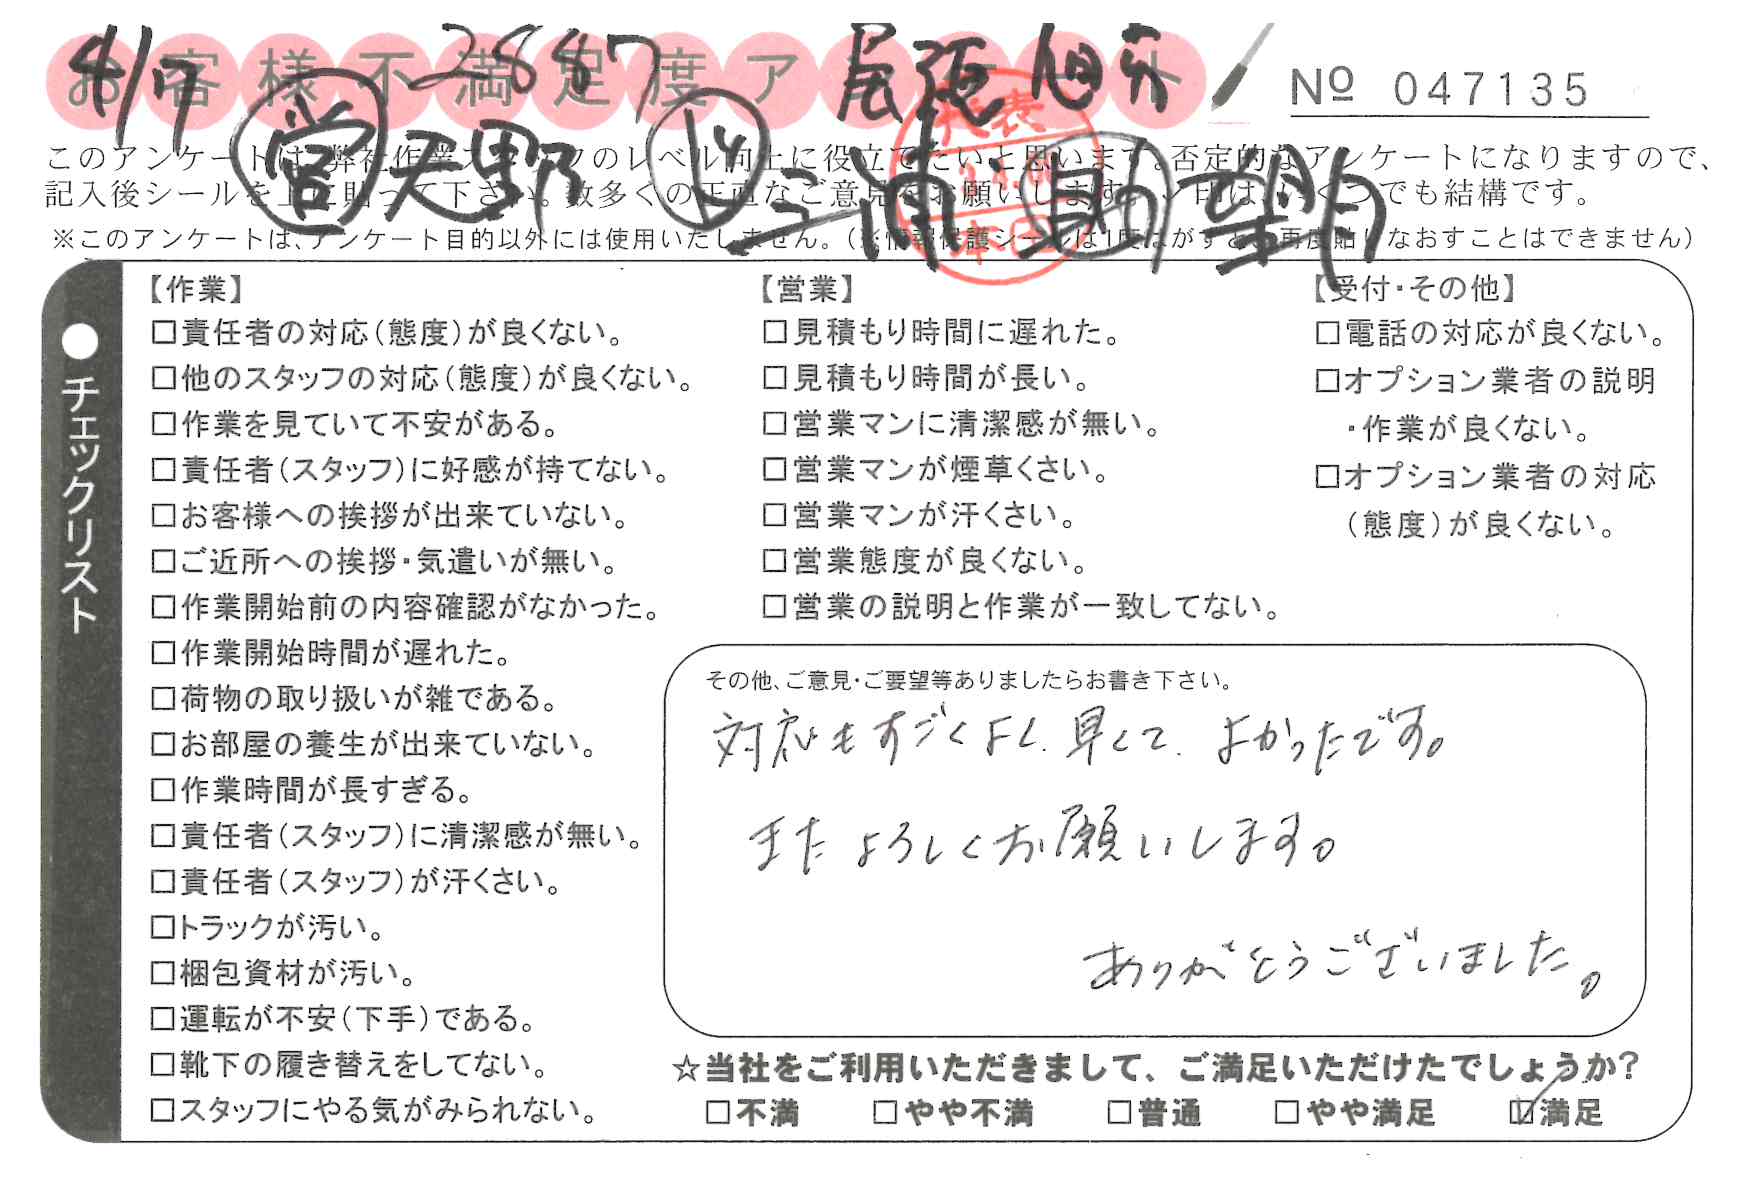 お客様不満足度アンケート
8/17 2687 尾張旭市
№ 047135
営 天野 上 三浦 助 望月
このアンケートは、弊社作業スタッフのレベル向上に役立てたいと思います。否定的なアンケートになりますので、
記入後シールを上に貼って下さい。数多くの正直なご意見をお願いします。レ印は、いくつでも結構です。
※このアンケートは、アンケート目的以外には使用いたしません。(※情報保護シールは1度はがすと、再度貼りなおすことはできません)
●チェックリスト
【作業】
□責任者の対応(態度)が良くない。
□他のスタッフの対応(態度)が良くない。
□作業を見ていて不安がある。
□責任者(スタッフ)に好感が持てない。
□お客様への挨拶が出来ていない。
□ご近所への挨拶・気遣いが無い。
□作業開始前の内容確認がなかった。
□作業開始時間が遅れた。
□荷物の取り扱いが雑である。
□お部屋の養生が出来ていない。
□作業時間が長すぎる。
□責任者(スタッフ)に清潔感が無い。
□責任者(スタッフ)が汗くさい。
□トラックが汚い。
□梱包資材が汚い。
□運転が不安(下手)である。
□靴下の履き替えをしてない。
□スタッフにやる気がみられない。
【営業】
□見積もり時間に遅れた。
□見積もり時間が長い。
□営業マンに清潔感が無い。
□営業マンが煙草くさい。
□営業マンが汗くさい。
□営業態度が良くない。
□営業の説明と作業が一致してない。
【受付・その他】
□電話の対応が良くない。
□オプション業者の説明
・作業が良くない。
□オプション業者の対応
(態度)が良くない。
その他、ご意見・ご要望等ありましたらお書き下さい。
対応もすごくよく、早くて、よかったです。
またよろしくお願いします。
ありがとうございました。
☆当社をご利用いただきまして、ご満足いただけたでしょうか?
□不満 □やや不満 □普通 □やや満足 ☑満足